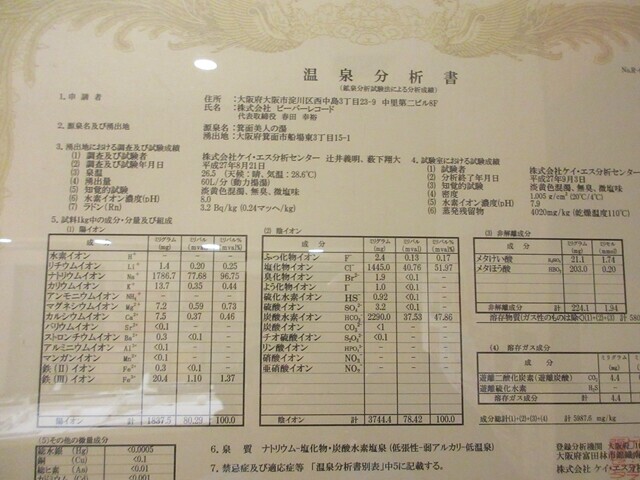 温泉分析書
(鉱泉分析試験法による分析成績)
1. 申請者
住所 :大阪府大阪市淀川区西中島3丁目23-9 中里第二ビル8F
氏名 :株式会社 ビーバーレコード
代表取締役 春田 幸裕
2. 源泉名及び湧出地
源泉名:箕面美人の湯
湧出地:大阪府箕面市船場東3丁目15-1
3. 湧出地における調査及び試験成績
(1) 調査及び試験者 株式会社ケイ・エス分析センター 辻井義明、薮下翔大
(2) 調査及び試験年月日 平成27年8月21日
(3) 泉温 26.5 (天候:晴、気温:28.6℃)
(4) 湧出量 60L/分 (動力揚湯)
(5) 知覚的試験 淡黄色混濁、無臭、微塩味
(6) 水素イオン濃度(pH) 8.0
(7) ラドン(Rn) 3.2 Bq/kg (0.24マッヘ/kg)
4. 試験室における試験成績
(1) 試験者 株式会社ケイ・エス分析
(2) 分析終了年月日 平成27年9月3日
(3) 知覚的試験 淡黄色混濁、無臭、微塩味
(4) 密度 1.005 g/cm³ (20℃/4℃)
(5) 水素イオン濃度(pH) 7.9
(6) 蒸発残留物 4020mg/kg (乾燥温度110℃)
5. 試料1kg中の成分・分量及び組成
(1) 陽イオン
成分 ミリグラム (mg) ミリバル (mval) ミリバル% (mval%)
水素イオン H⁺ - - -
リチウムイオン Li⁺ 1.4 0.20 0.25
ナトリウムイオン Na⁺ 1786.7 77.68 96.75
カリウムイオン K⁺ 13.7 0.35 0.44
アンモニウムイオン NH₄⁺ - - -
マグネシウムイオン Mg²⁺ 7.2 0.59 0.73
カルシウムイオン Ca²⁺ 7.5 0.37 0.46
バリウムイオン <0.1 - -
ストロンチウムイオン 0.3 <0.1 -
アルミニウムイオン Al³⁺ <0.1 - -
マンガンイオン Mn²⁺ <0.1 - -
鉄(II)イオン Fe²⁺ 0.3 <0.1 -
鉄(III)イオン Fe³⁺ 20.4 1.10 1.37
陽イオン 計 1837.5 80.29 100.0
(2) 陰イオン
成分 ミリグラム (mg) ミリバル (mval) ミリバル% (mval%)
ふっ化物イオン F⁻ 2.4 0.13 0.17
塩化物イオン Cl⁻ 1445.0 40.76 51.97
臭化物イオン Br⁻ 1.9 <0.1 -
よう化物イオン I⁻ 1.0 <0.1 -
硫化水素イオン HS⁻ 0.92 <0.1 -
硫酸イオン SO₄²⁻ 3.2 <0.1 -
炭酸水素イオン HCO₃⁻ 2290.0 37.53 47.86
炭酸イオン CO₃²⁻ <1 - -
チオ硫酸イオン S₂O₃²⁻ <0.1 - -
リン酸イオン - - -
硝酸イオン NO₃⁻ - - -
亜硝酸イオン - - -
陰イオン 計 3744.4 78.42 100.0
(3) 非解離成分
成分 ミリグラム (mg) ミリモル (mmol)
メタけい酸 H₂SiO₃ 21.1 1.74
メタほう酸 HBO₂ 203.0 0.20
非解離成分 計 224.1 1.94
溶存物質(ガス性のものは除く)(1)+(2)+(3) 計
(4) 溶存ガス成分
成分 ミリグラム (mg)
遊離二酸化炭素(遊離炭酸) CO₂ 4.4
遊離硫化水素 H₂S -
溶存ガス成分 計 4.4
成分総計(1)+(2)+(3)+(4) 計 5987.6 mg/kg
(5)その他の微量成分
総水銀 (Hg) <0.0005
銅 (Cu) <0.1
総ヒ素 (As) <0.01
カドミウム (Cd) <0.001
6. 泉質 ナトリウム-塩化物・炭酸水素塩泉(低張性-弱アルカリ-低温泉)
7. 禁忌症及び適応症等 「温泉分析書別表」中5に記載する。
登録分析機関 大阪府
大阪府富田林市
株式会社 ケイ・エス分